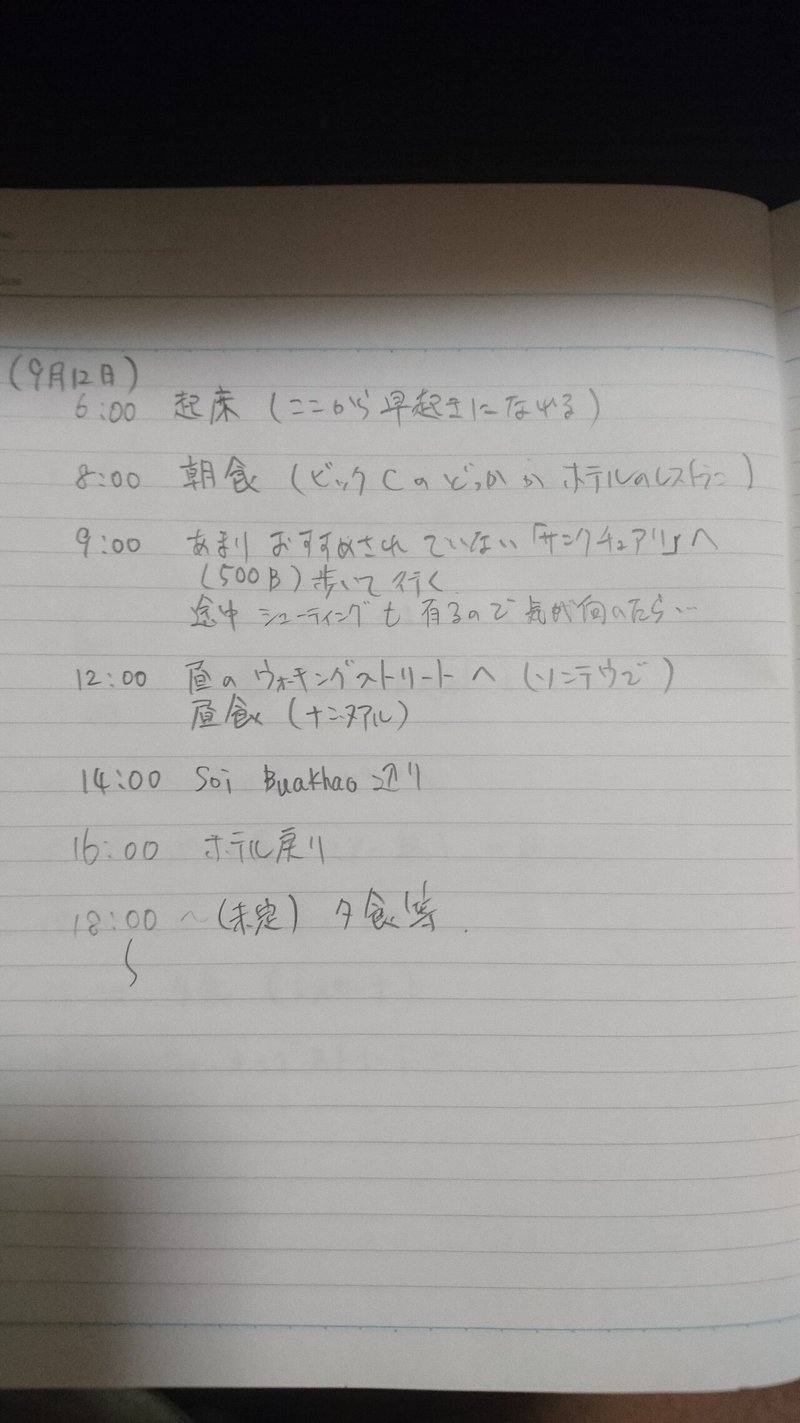 (9月12日)
6:00 起床 (ここから早起きになれる)
8:00 朝食 (ビックCのどっかか ホテルのレストラン)
9:00 あまりおすすめされていない「サンクチュアリ」へ
(500B) 歩いて行く
途中 シューティングも有るので気が向いたら…
12:00 昼のウォーキングストリートへ (ソンテウで)
昼食 (ナンタアル)
14:00 Soi Buakhao 辺り
16:00 ホテル戻り
18:00 ~ (未定) 夕食等.